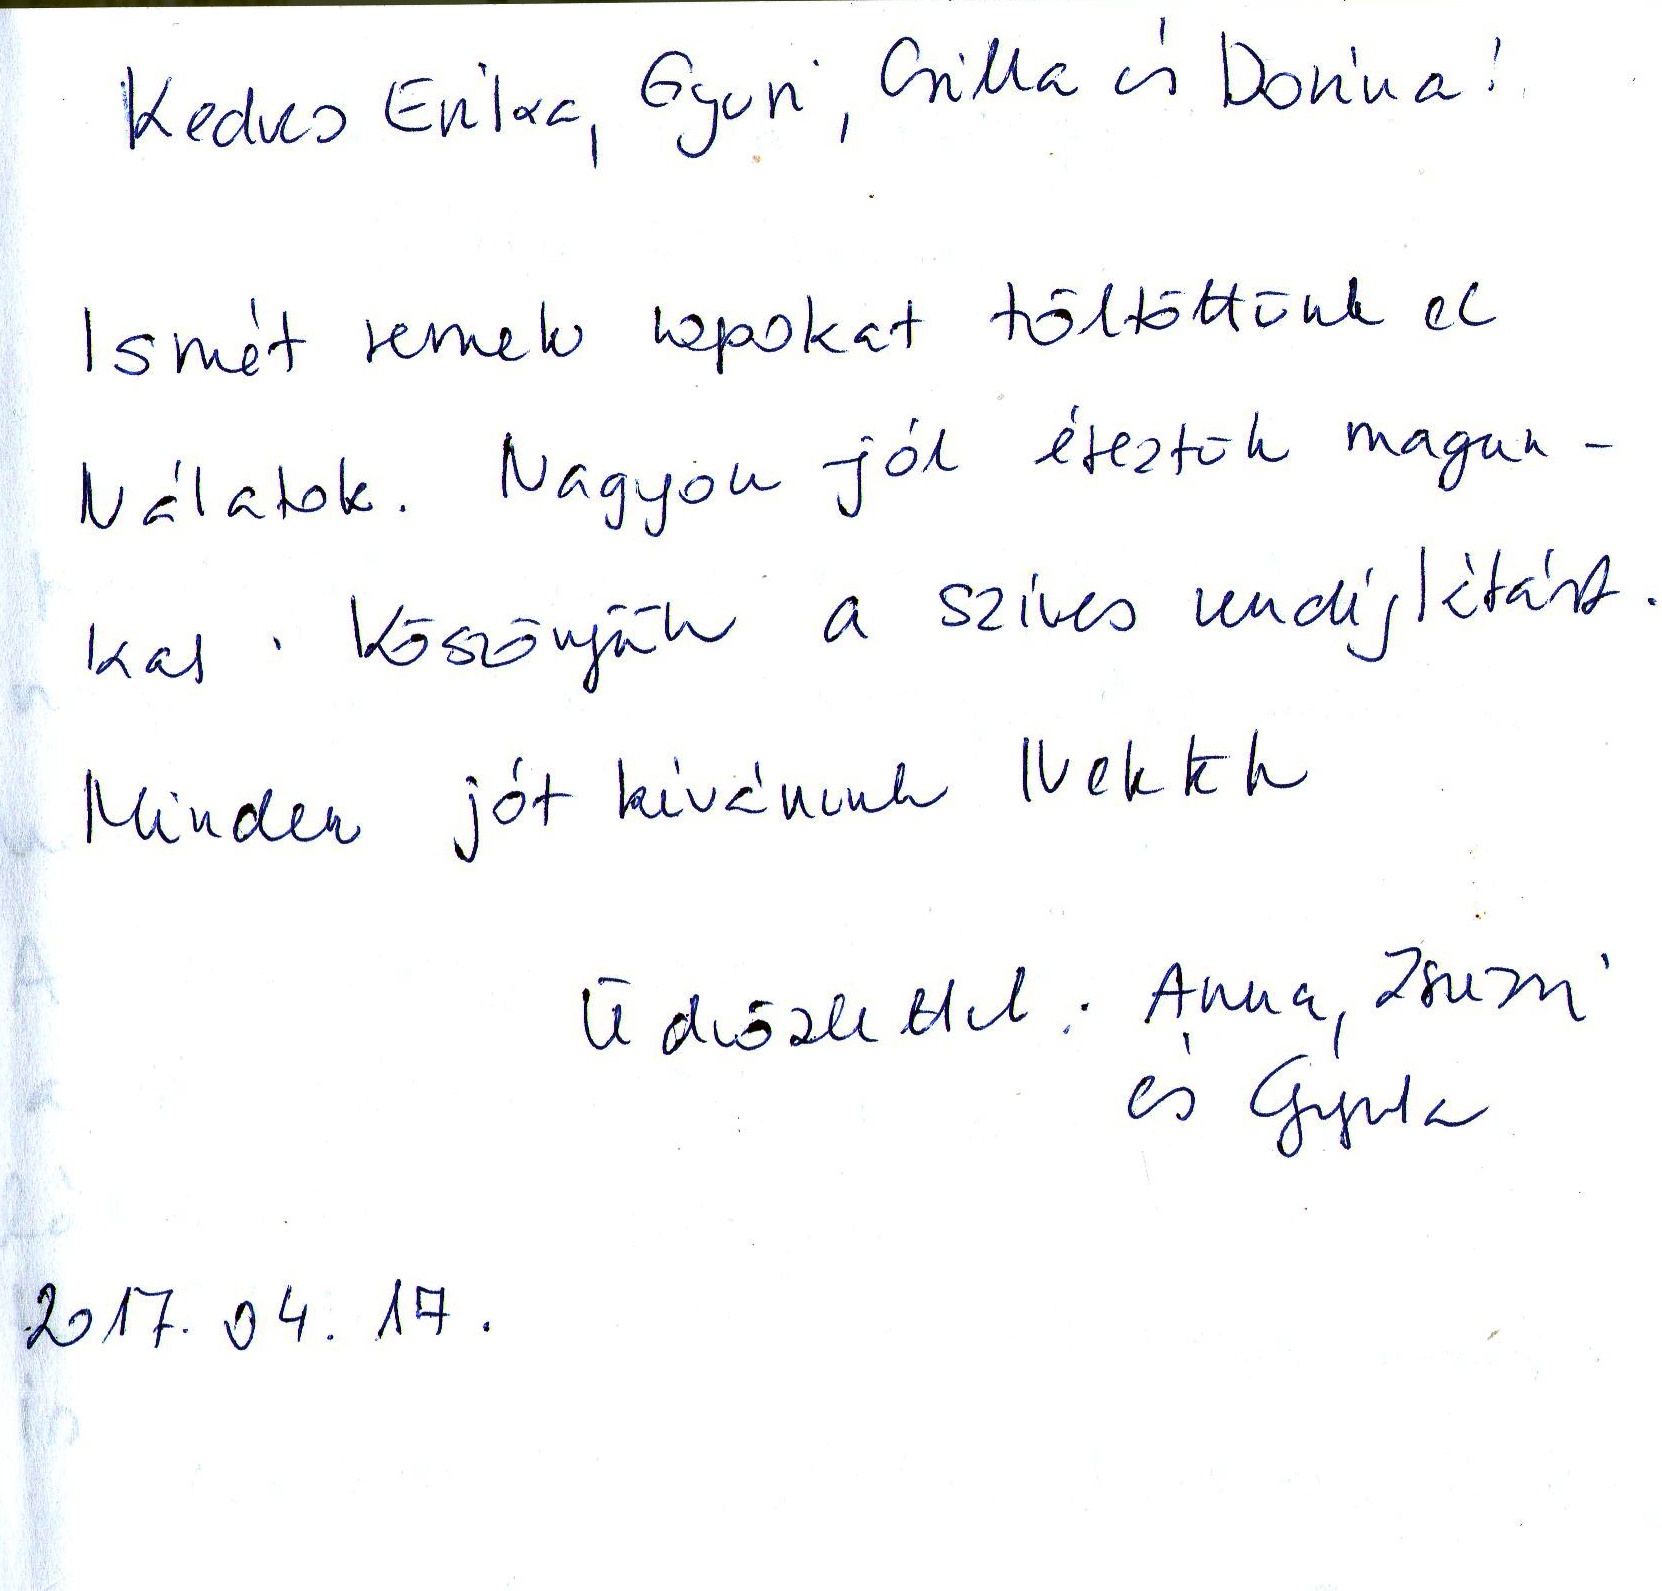 Kedves Erika, Gyuri, Csilla és Dorina!
Ismét remek napokat töltöttünk el
Nálatok. Nagyon jól éreztük magun-
kat. Köszönjük a szíves vendéglátást.
Minden jót kívánunk Nektek
Üdvözlettel: Anna, Zsuzsi
és Gyula
2017. 04. 17.